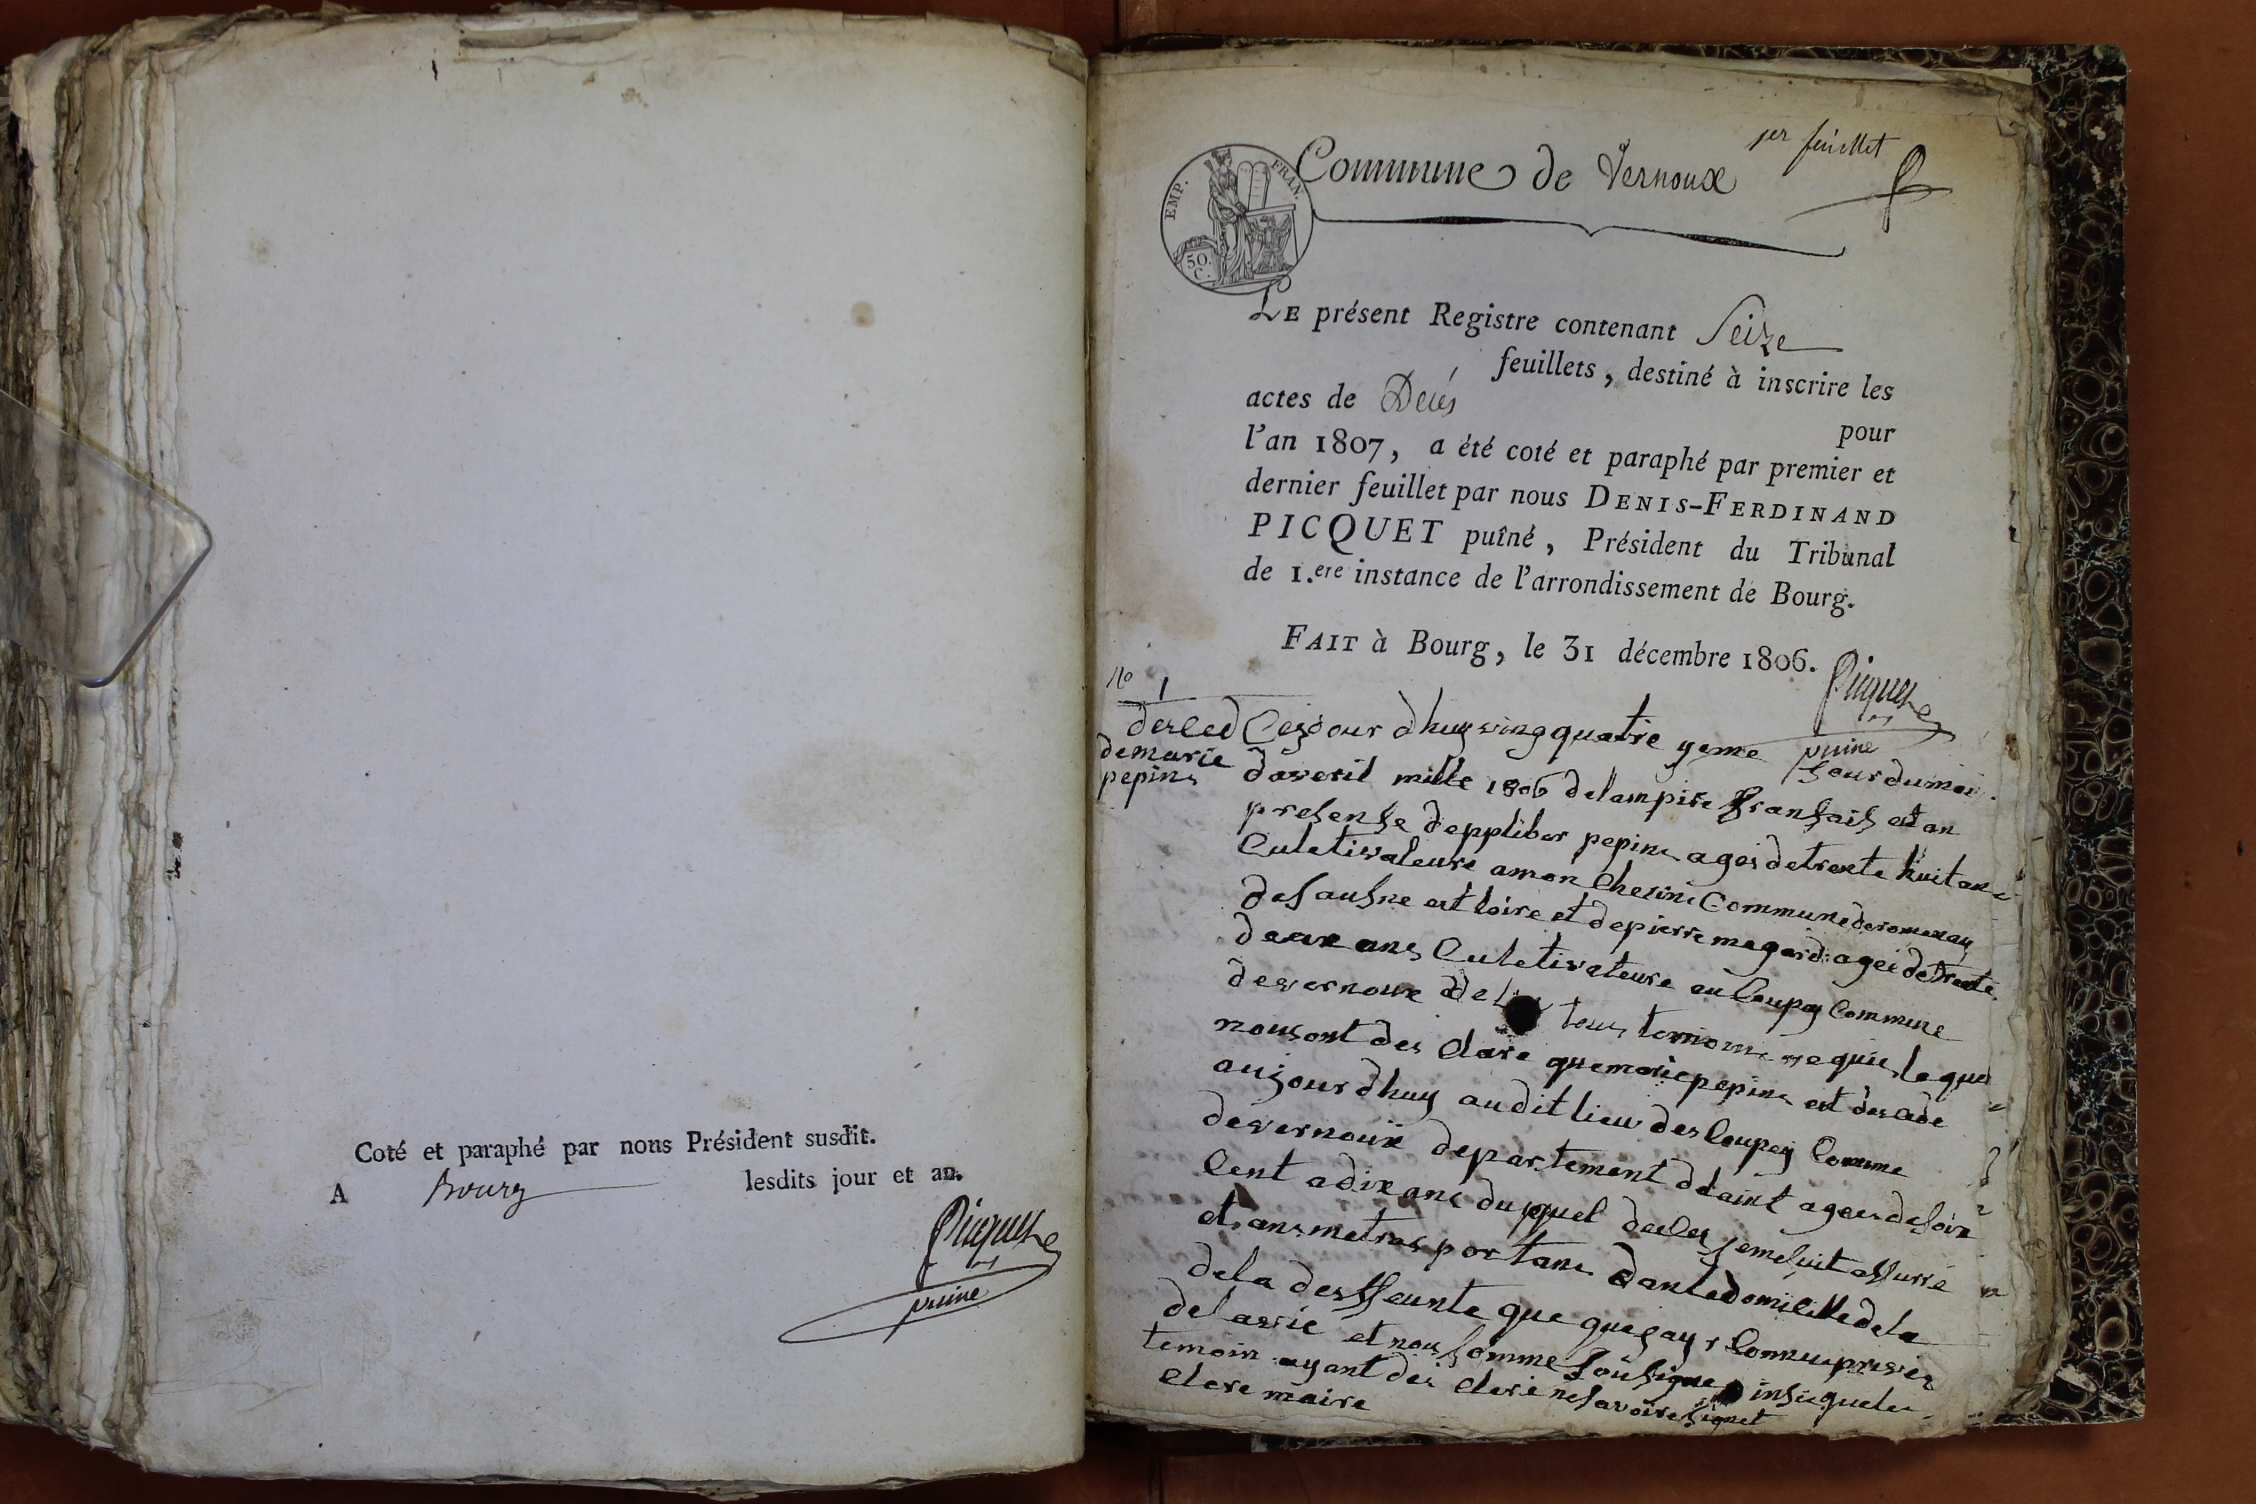 Coté et paraphé par nous Président susdit.
A Bourg lesdits jour et an.
Picquet
puiné
1er feuillet
Commune de Vernoux
EMP. FRAN.
50.
C.
LE présent Registre contenant Seize
feuillets, destiné à inscrire les
actes de Decés
pour
l'an 1807, a été coté et paraphé par premier et
dernier feuillet par nous DENIS-FERDINAND
PICQUET puîné, Président du Tribunal
de 1.ere instance de l'arrondissement de Bourg.
FAIT à Bourg, le 31 décembre 1806.
Picquet
puiné
No 1
desced
de marie
pepin
Cejour dhuy ving quatre yeme jour du moi
daveril mille 1806 delampire franſais et an
preſenſe depplibor pepin ages detrente huit an
Culetivateure amon Cherini Commune deromenay
deſauſne et loire et depierre megard agei detrente
deux ans Culetivateure au Coupey Commune
devernoux del tous temoin lequel
nousont des clare que marie pepin est decade
aujourdhuy audit lieu des Coupey Comune
devernoux departement delaint agee deſoix
Cent adix ans duquel deces jemeſuit aſſurré
et ansmetrasportans dantedomicille dela
dela desſeunte que quejay Connu
delavie et nous ſomme ſouſigne inſi que les
temoin ayant des clare ne ſavoire ſignet
clare maire